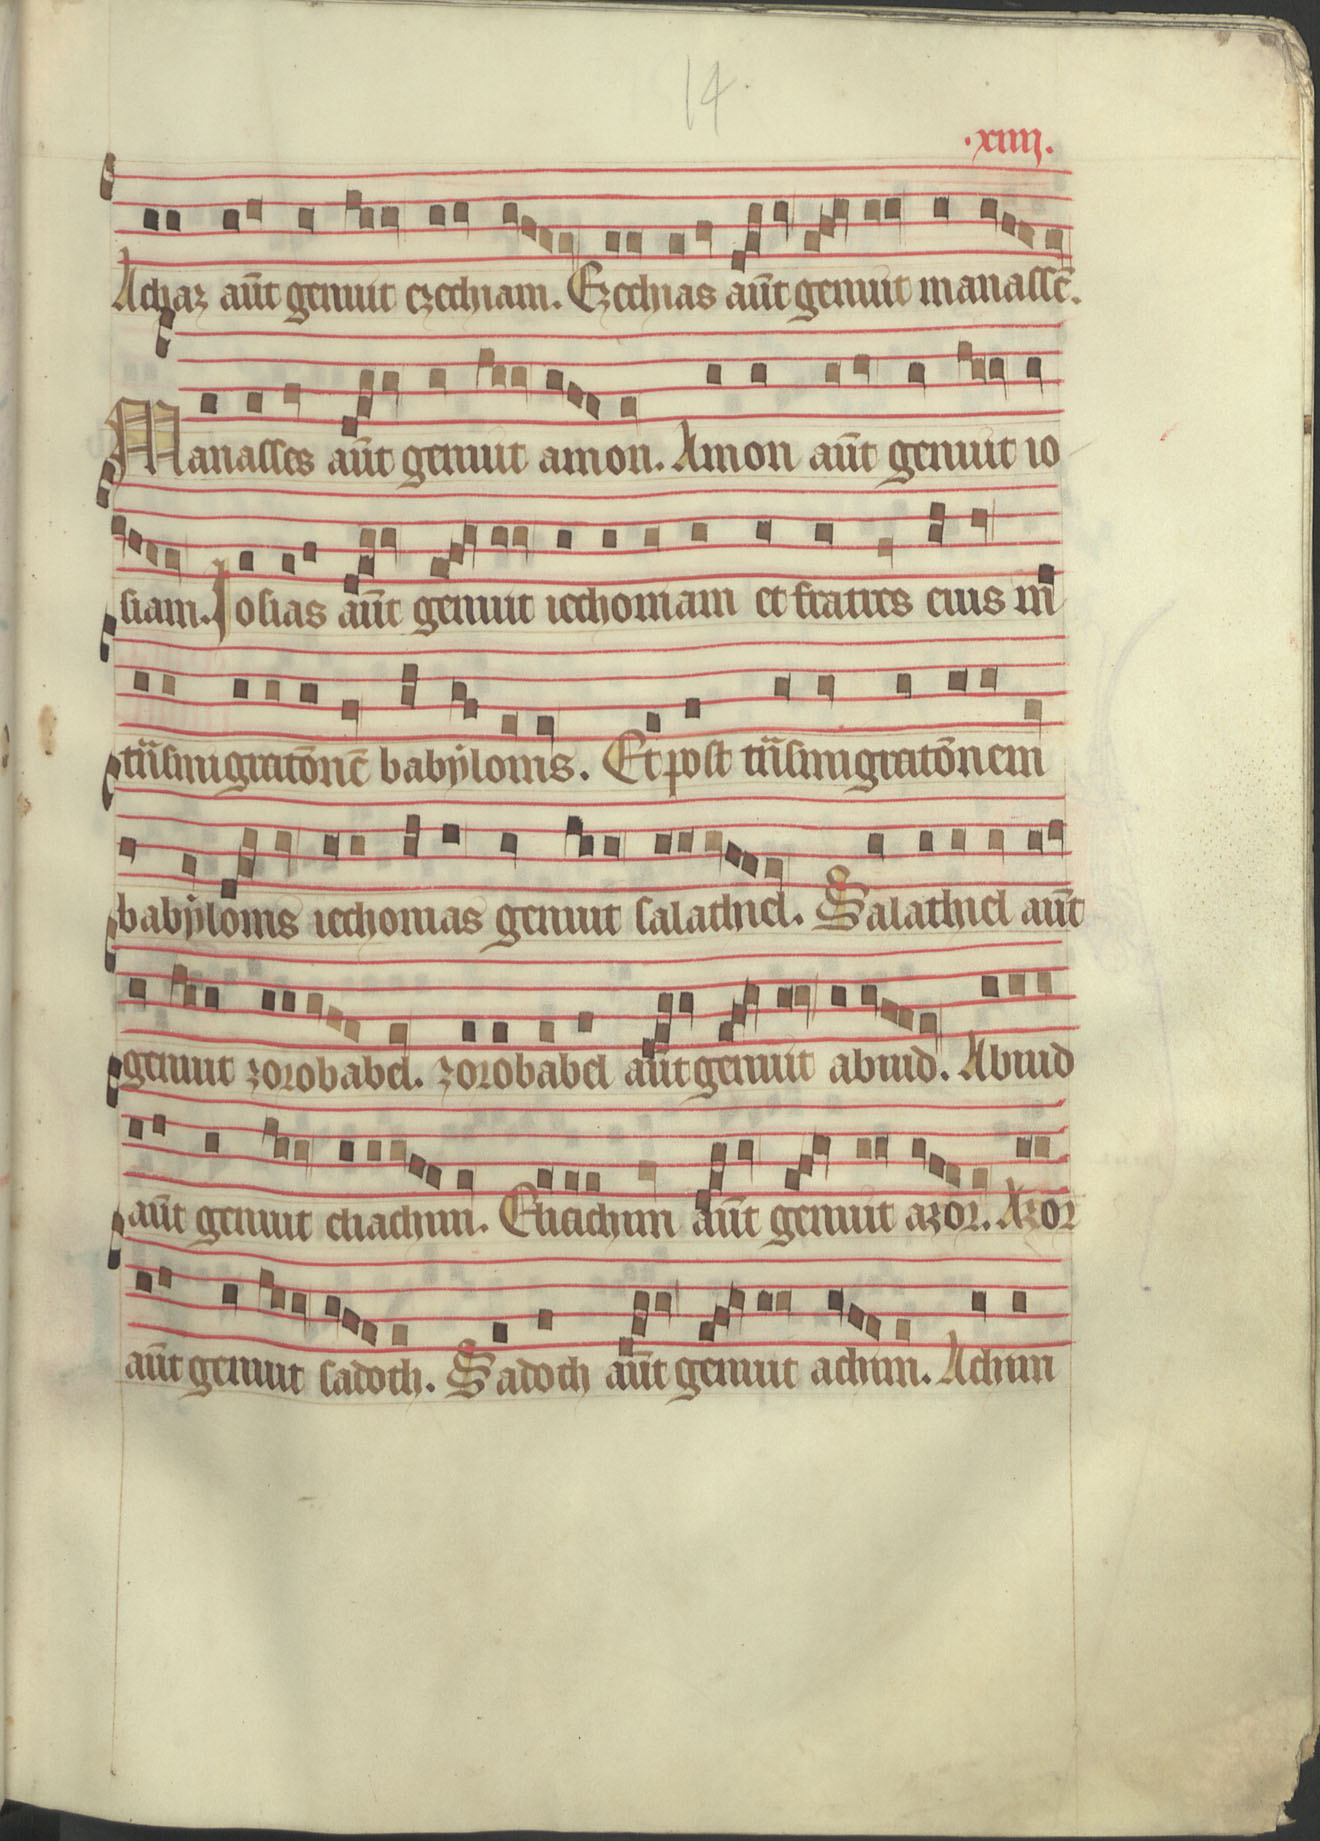 14.
.xiiij.
Achaz aut̄ genuit ezechiam. Ezechias aut̄ genuit manassē.
Manasses aut̄ genuit amon. Amon aut̄ genuit io
siam. Josias aut̄ genuit iechoniam et fratres eius in
tn̄smigratōnē babẏlonis. Et post tn̄smigratōnem
babẏlonis iechonias genuit salathiel. Salathiel aut̄
genuit zorobabel. zorobabel aut̄ genuit abiud. Abiud
aut̄ genuit eliachim. Eliachim aut̄ genuit azor. Azor
aut̄ genuit sadoch. Sadoch aut̄ genuit achim. Achim